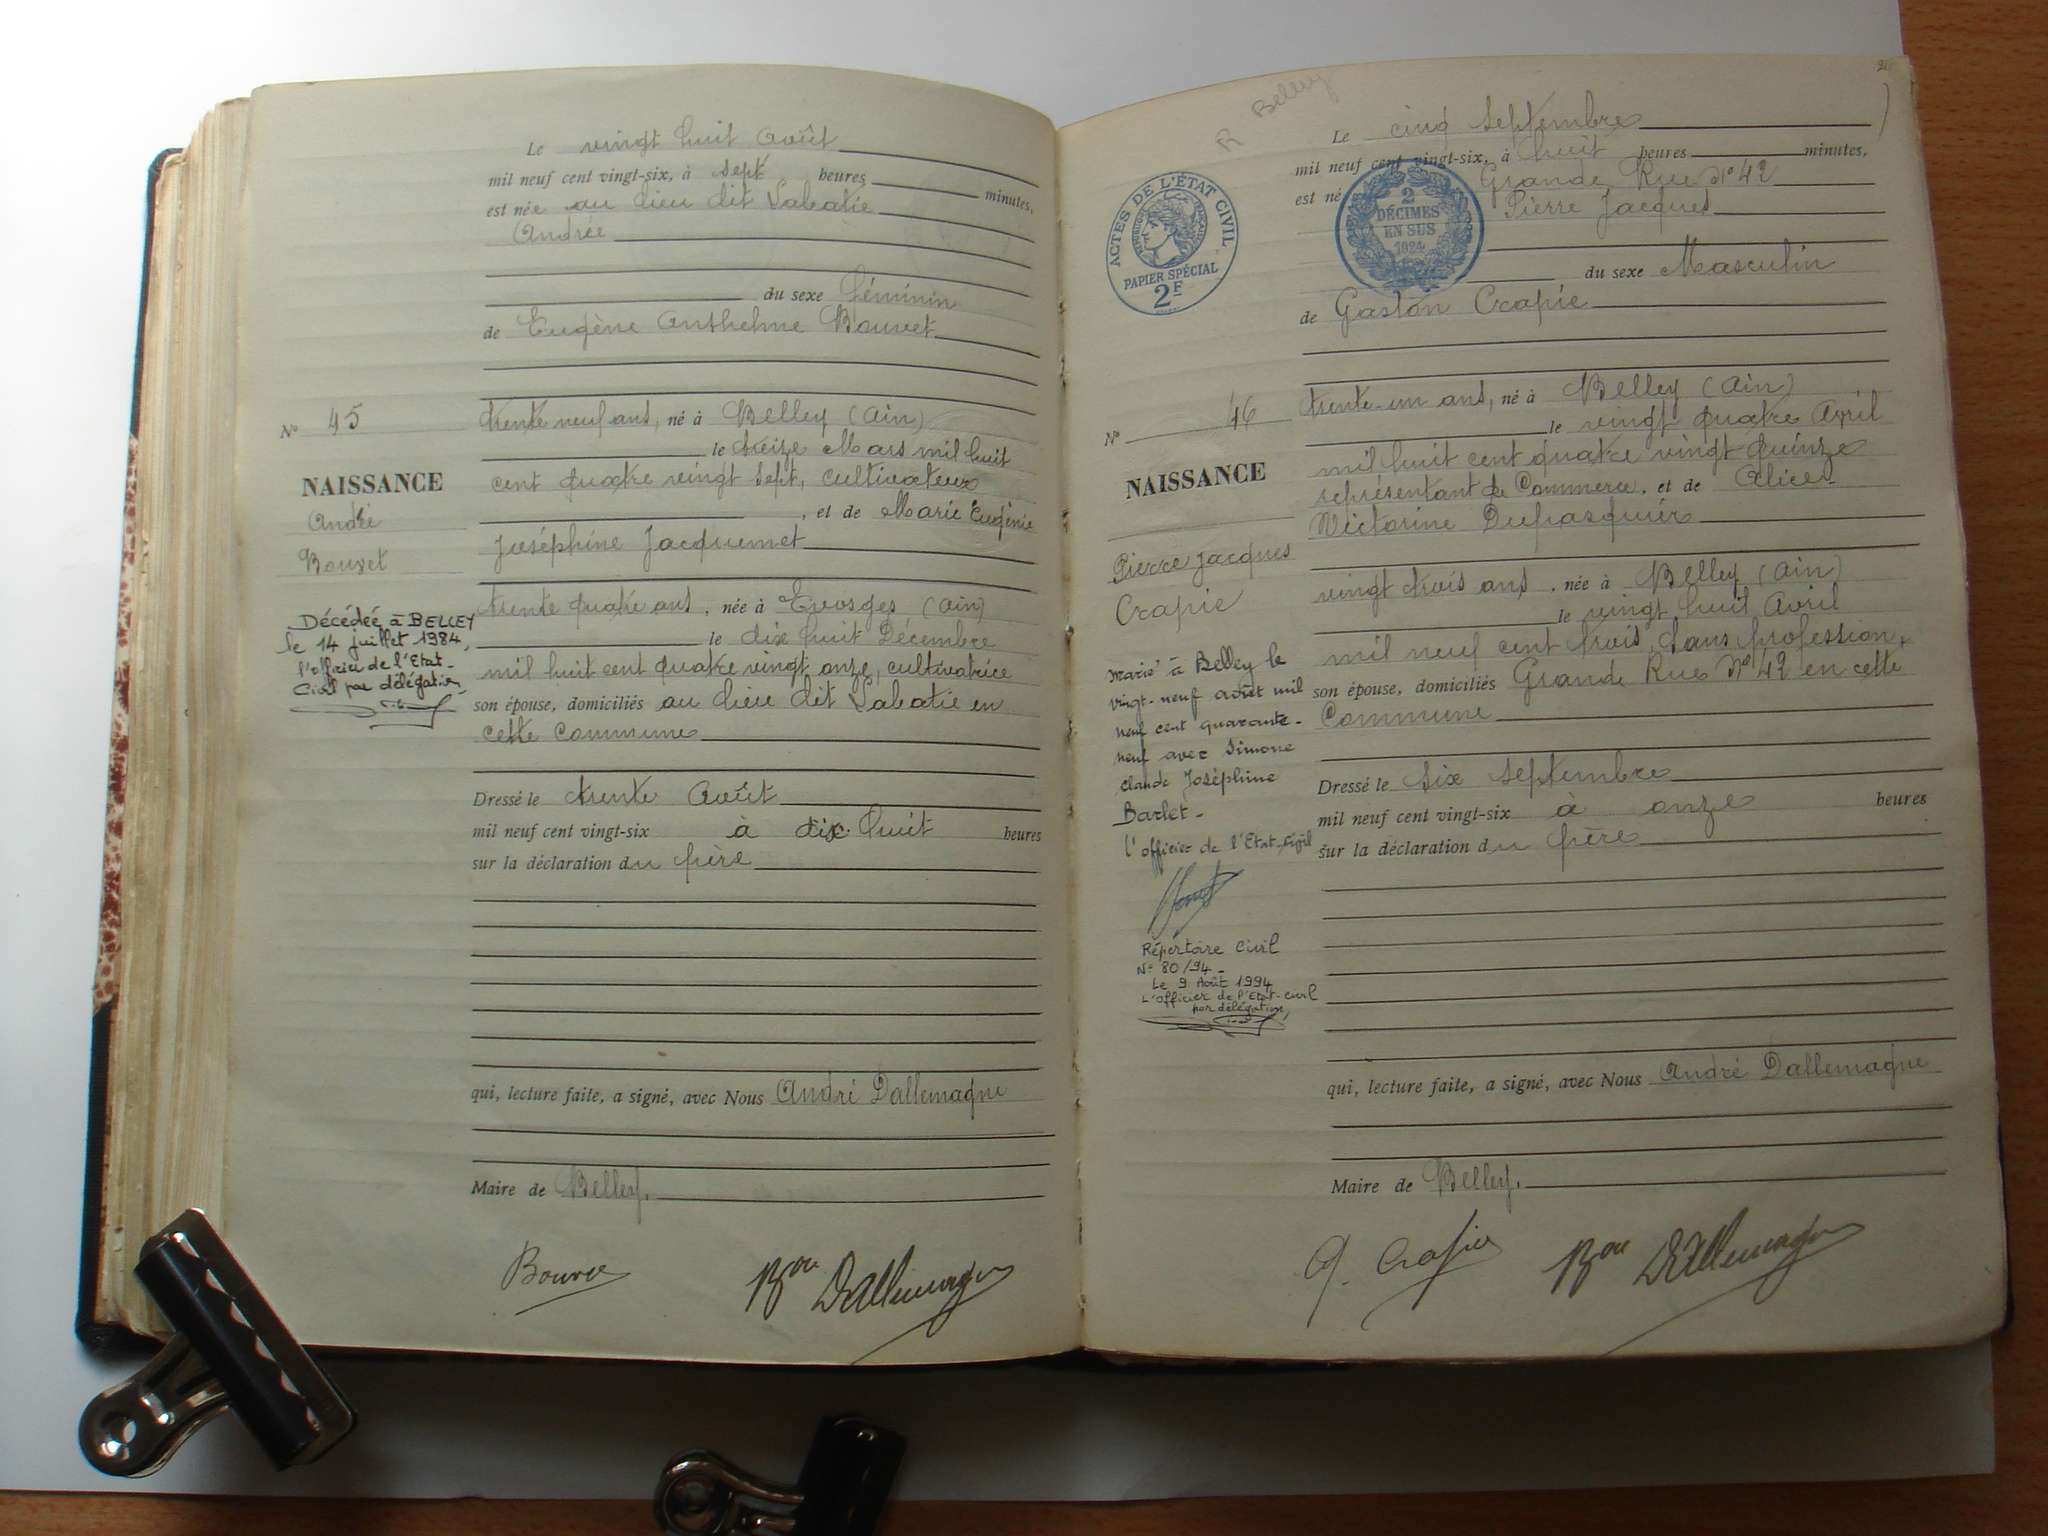 Le vingt huit Août
mil neuf cent vingt-six, à sept heures minutes,
est née au lieu dit Labatie
Andrée
du sexe féminin
de Eugène Anthelme Bouvet
trente neuf ans, né à Belley (Ain)
le treize Mars mil huit
cent quatre vingt sept, cultivateur
, et de Marie Eugénie
Joséphine Jacquemet
trente quatre ans, née à Evosges (Ain)
le dix huit Décembre
mil huit cent quatre vingt onze, cultivatrice
son épouse, domiciliés au lieu dit Labatie en
cette Commune
Dressé le trente Août
mil neuf cent vingt-six à dix huit heures
sur la déclaration du père
qui, lecture faite, a signé, avec Nous André Dallemagne
Maire de Belley.
Bon Dallemagne
N° 45
NAISSANCE
André
Bouvet
Décédée à BELLEY
le 14 juillet 1984,
l'officier de l'Etat-
Civil par délégation
R Belley
Le cinq Septembre
mil neuf cent vingt-six, à huit heures minutes,
est né Grande Rue N° 42
Pierre Jacques
du sexe Masculin
de Gaston Crapie
trente-un ans, né à Belley (Ain)
le vingt quatre Avril
mil huit cent quatre vingt quinze
représentant de Commerce, et de Alice
Victorine Dupasquier
vingt trois ans, née à Belley (Ain)
le vingt huit Avril
mil neuf cent trois, sans profession,
son épouse, domiciliés Grande Rue N° 42 en cette
Commune
Dressé le six septembre
mil neuf cent vingt-six à onze heures
sur la déclaration du père
qui, lecture faite, a signé, avec Nous André Dallemagne
Maire de Belley.
G. Crapie Bon Dallemagne
ACTES DE L'ÉTAT CIVIL
PAPIER SPÉCIAL
2F
2
DÉCIMES
EN SUS
1924
N° 46
NAISSANCE
Pierre Jacques
Crapie
Marié à Belley le
vingt-neuf août mil
neuf cent quarante-
neuf avec Simone
Claude Joséphine
Barlet-
L'officier de l'Etat-Civil
Répertoire Civil
N° 80/94-
Le 9 Août 1994
L'officier de l'Etat-civil
par délégation,